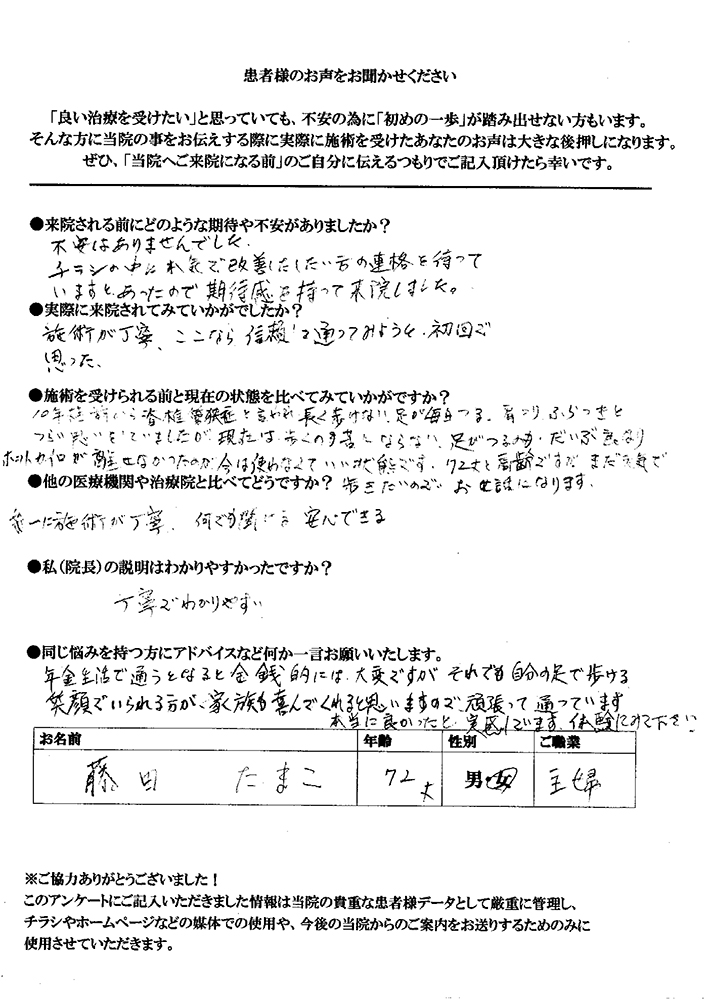 患者様のお声をお聞かせください
「良い治療を受けたい」と思っていても、不安の為に「初めの一歩」が踏み出せない方もいます。
そんな方に当院の事をお伝えする際に実際に施術を受けたあなたのお声は大きな後押しになります。
ぜひ、「当院へご来院になる前」のご自分に伝えるつもりでご記入頂けたら幸いです。
●来院される前にどのような期待や不安がありましたか？
不安はありませんでした。
チラシの中に本気で改善したい方の連絡を待って
いますと、あったので期待感を持って来院しました。
●実際に来院されてみていかがでしたか？
施術が丁寧、ここなら信頼して通ってみようと、初回で
思った、
●施術を受けられる前と現在の状態を比べてみていかがですか？
10年位前から脊椎狭窄症と言われ長く歩けない、足が毎日つる、肩こり、ふらつきと
つらい思いをしていましたが現在は歩くのも苦とならない、足がつるのも、だいぶ無くなり
ホットカイロが離せなかったのが今は使わなくていい状態です。72才と高齢ですがまだ元気で
●他の医療機関や治療院と比べてどうですか？ 歩きたいので、お世話になります。
第一に施術が丁寧、何でも聞ける 安心できる
●私（院長）の説明はわかりやすかったですか？
丁寧でわかりやすい
●同じ悩みを持つ方にアドバイスなど何か一言お願いいたします。
年金生活で通うとなると金銭的には、大変ですが それでも自分の足で歩ける
笑顔でいられる方が、家族も喜んでくれると思いますので、頑張って通っています
本当に良かったと、実感しています。体験にみて下さい
お名前 年齢 性別 ご職業
藤田 たまこ 72才 男・女 主婦
※ご協力ありがとうございました！
このアンケートにご記入いただきました情報は当院の貴重な患者様データとして厳重に管理し、
チラシやホームページなどの媒体での使用や、今後の当院からのご案内をお送りするためのみに
使用させていただきます。